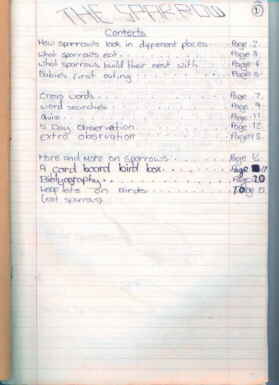 THE SPARROW
1
Contents
How sparrows look in different places Page 2
What sparrows eat Page 3
What sparrows build their nest with Page 4
Babies first outing Page 6
Cross words Page 7
Word searches Page 9
Quiz Page 11
5 Day Observation Page 12
extra observation Page
More and More on sparrows Page
A card board bird box Page
Page 20
on Birds
(not sparrows)